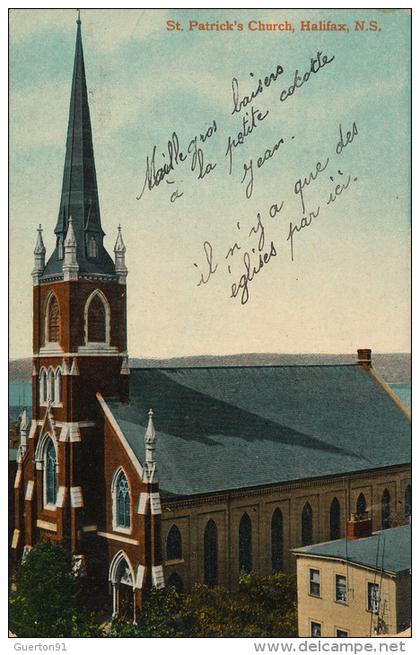 St. Patrick's Church, Halifax, N.S.
Mille gros baisers
à la petite cocotte
Jean.
il n'y a que des
églises par ici.
Guerton91
http://guerton91.delcampe.net